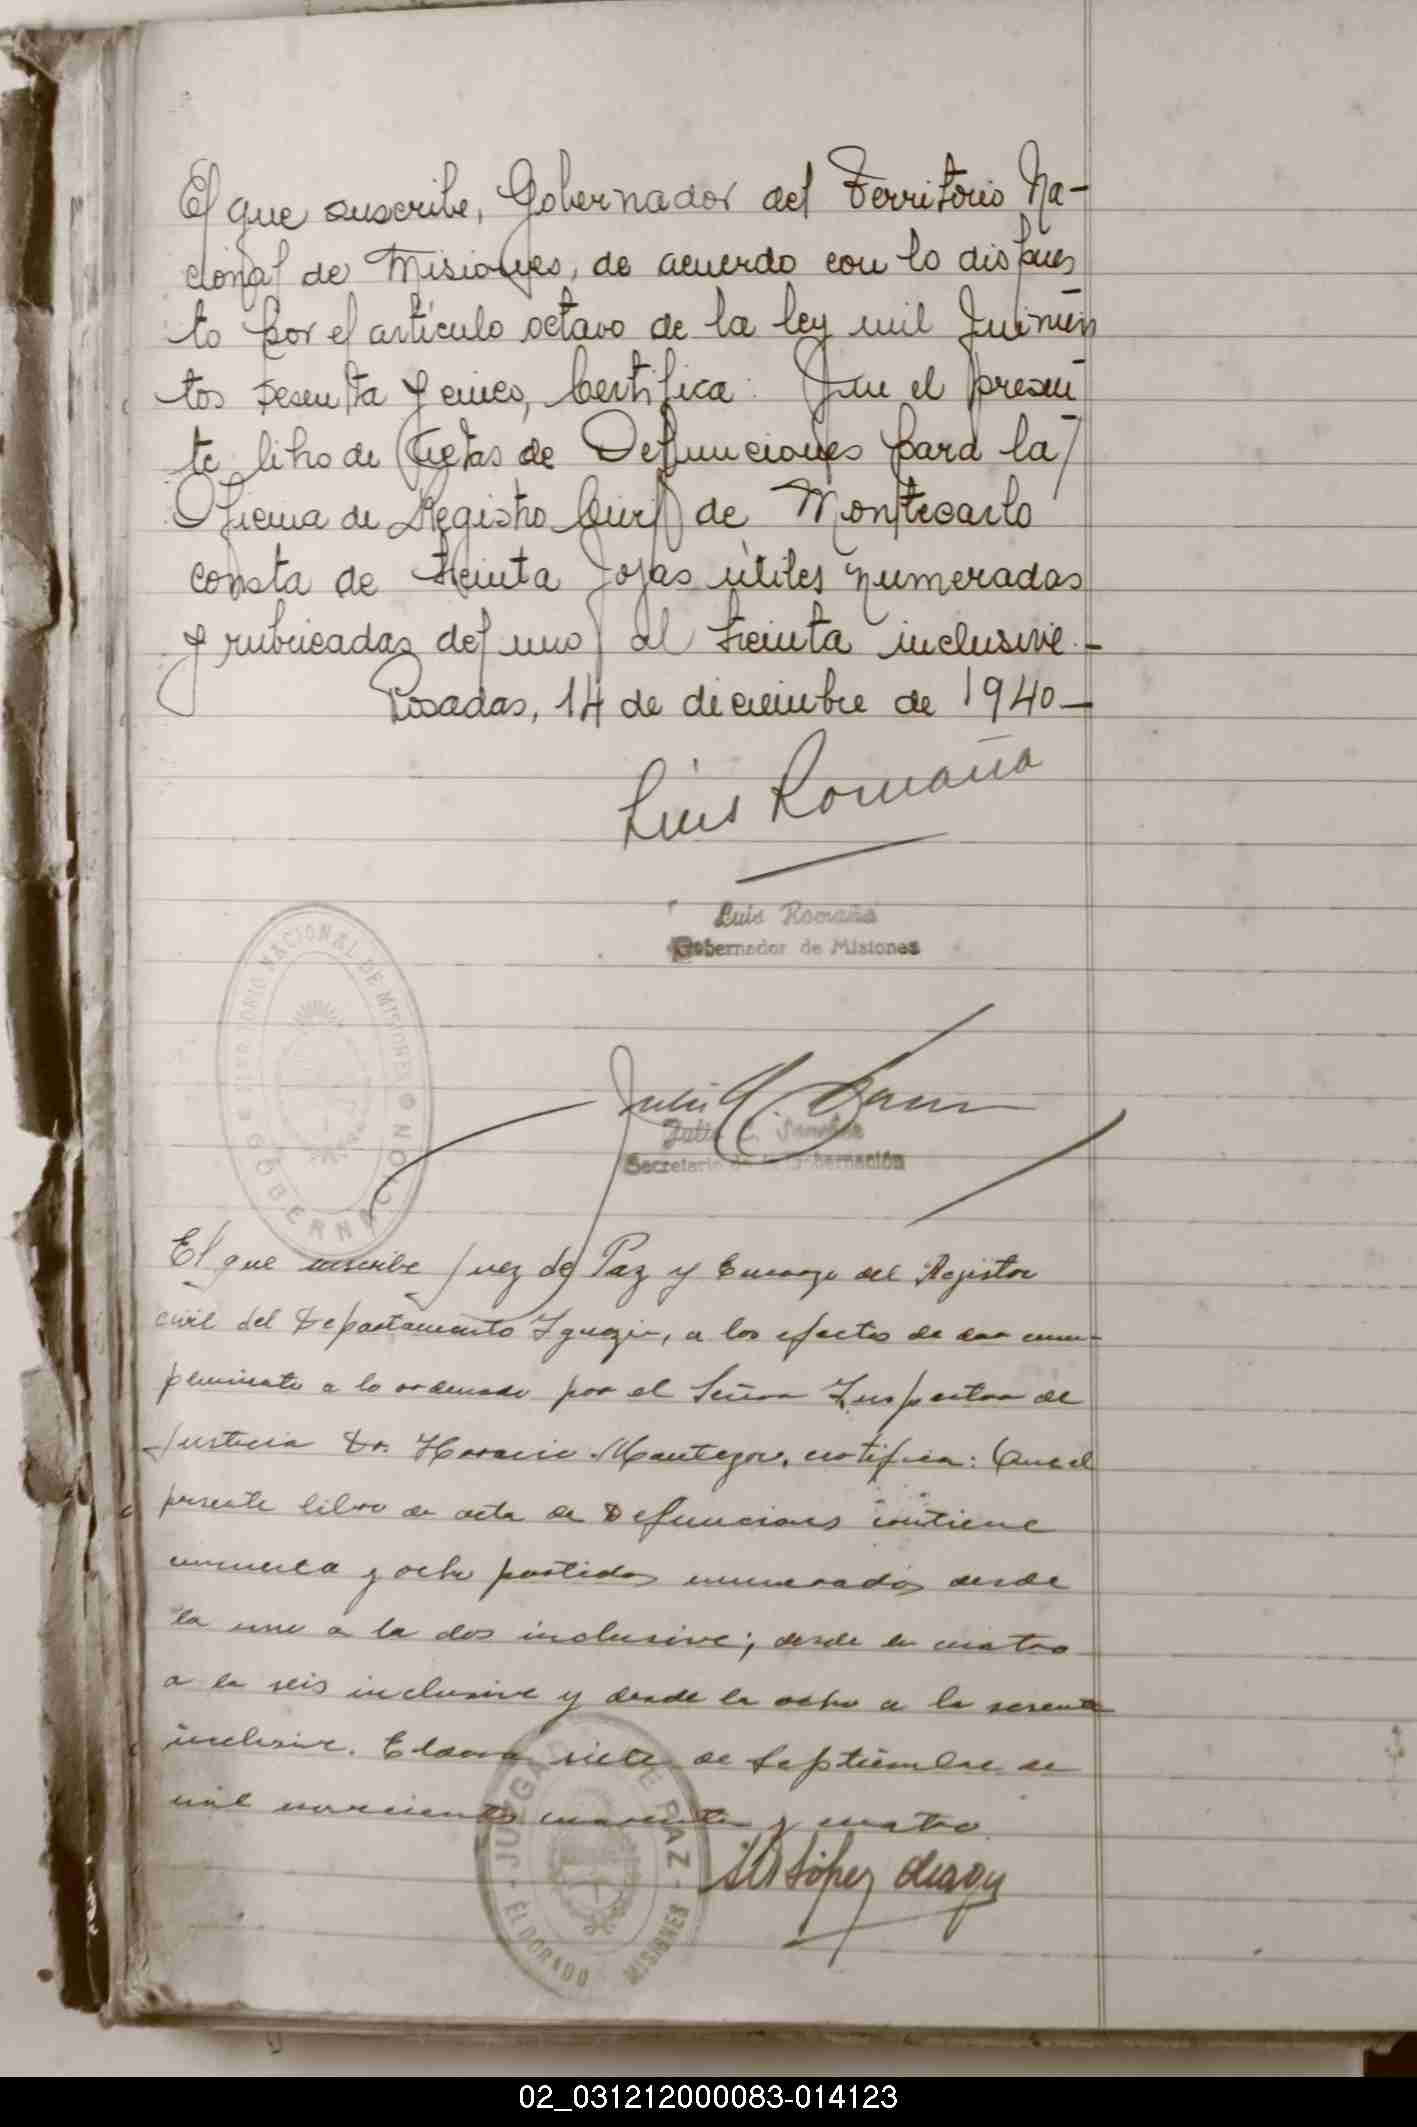 El que suscribe, Gobernador del Territorio Na-
cional de Misiones, de acuerdo con lo dispues
to por el artículo octavo de la ley mil quinien
tos sesenta y cinco, Certifica: Que el presen
te libro de Actas de Defunciones para la
Oficina de Registro Civil de Montecarlo
consta de treinta fojas útiles numeradas
y rubricadas del uno al treinta inclusive.-
Posadas, 14 de diciembre de 1940-
Luis Romaña
Luis Romaña
Gobernador de Misiones
GOBERNACION DEL TERRITORIO NACIONAL DE MISIONES
Julio C. Sanchez
Secretario de la Gobernación
El que suscribe Juez de Paz y Encargo del Registro
civil del Departamento Iguazú, a los efectos de dar cum-
plimiento a lo ordenado por el Señor Inspector de
Justicia Dr. Horacio certifica: Que el
presente libro de acta de Defunciones contiene
cincuenta y ocho partidas numeradas desde
la uno a la dos inclusive; desde la cuatro
a la seis inclusive y desde la ocho a la sesenta
inclusive. Eldorado siete de Septiembre de
mil novecientos cuarenta y cuatro.
López
JUZGADO DE PAZ - ELDORADO MISIONES
02_031212000083-014123